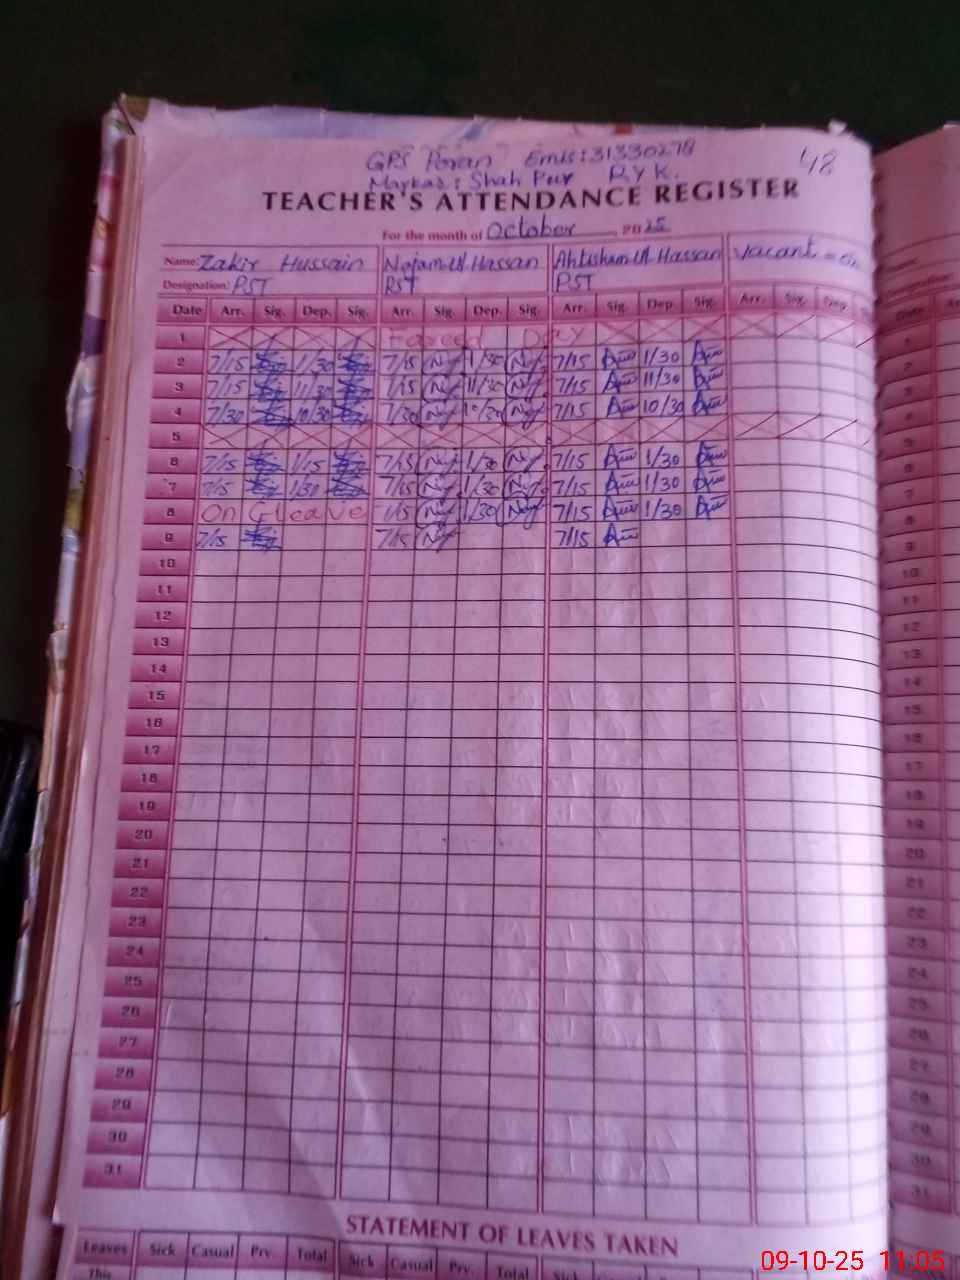 GPS Poran Emis: 31330278 148
Markaz: Shah Pur R Y K.
TEACHER'S ATTENDANCE REGISTER
For the month of October 2025
Name: Zakir Hussain Najam Ul Hassan Ahtisham Ul Hassan Vacant
Designation: PST PST PST
Date Arr. Sig. Dep. Sig. Arr. Sig. Dep. Sig. Arr. Sig. Dep. Sig. Arr. Sig. Dep.
1 Day
2 7/15 1/30 7/15 1/30 7/15 1/30
3 7/15 11/30 7/15 11/30 7/15 11/30
4 7/30 10/30 7/30 10/30 7/15 10/30
5
6 7/15 1/15 7/15 1/30 7/15 1/30
7 7/15 1/30 7/15 1/30 7/15 1/30
8 On C leave 1/30 7/15 1/30
9 7/15 7/15 7/15
10
11
12
13
14
15
16
17
18
19
20
21
22
23
24
25
26
27
28
29
30
31
STATEMENT OF LEAVES TAKEN
Leaves Sick Casual Prv. Total Sick Casual Prv. Total Sick
This
09-10-25 11:05